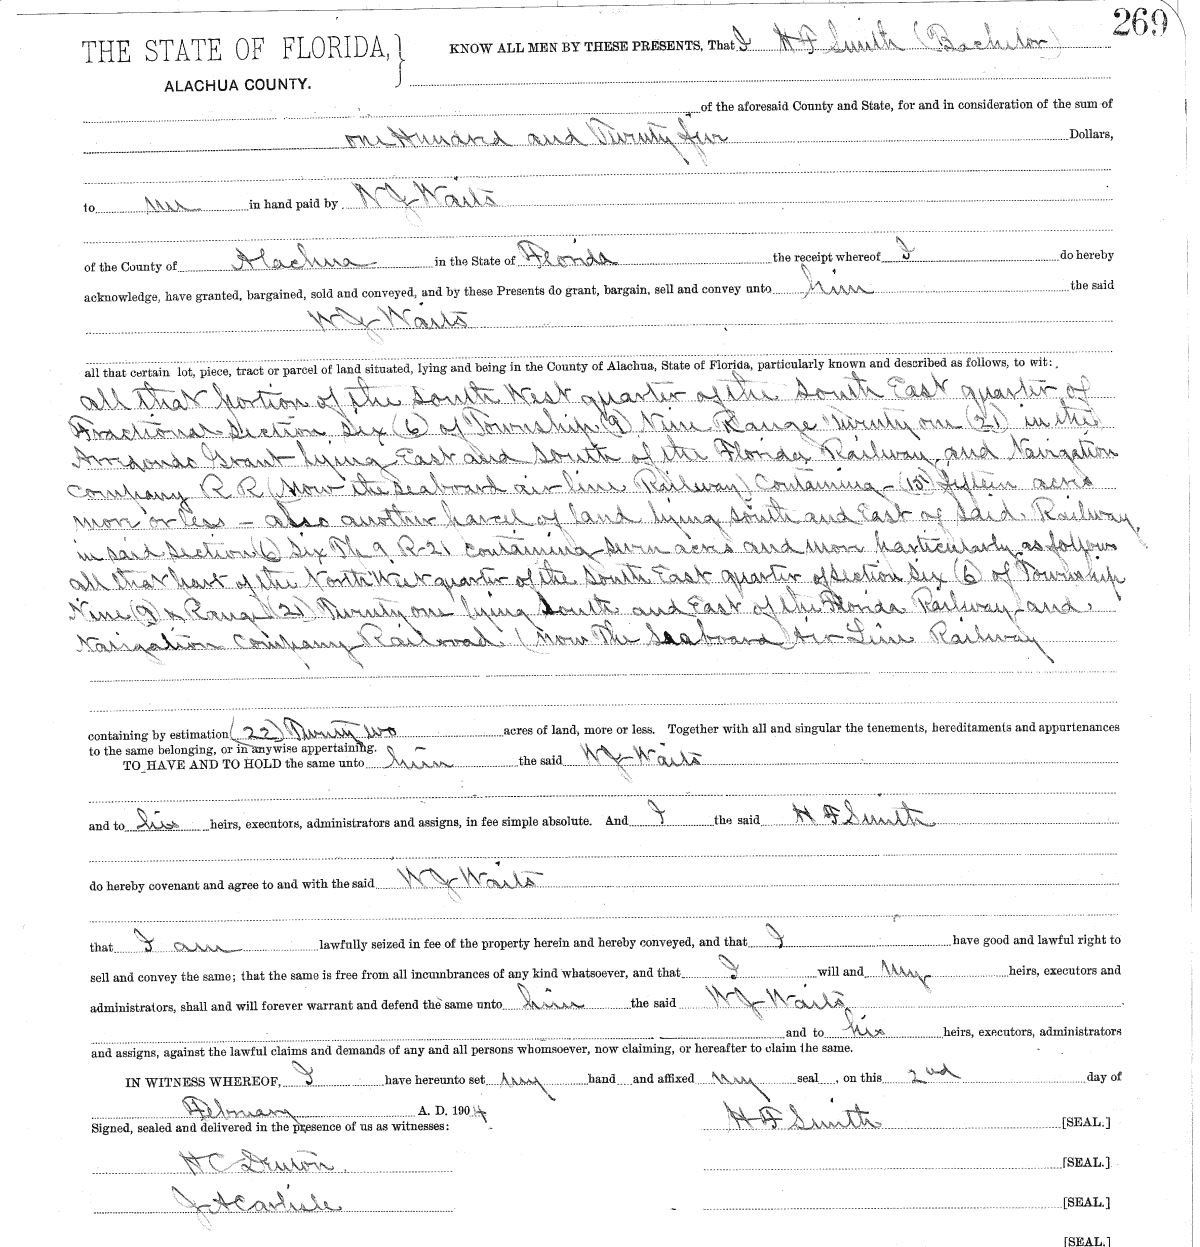 269
THE STATE OF FLORIDA, }
ALACHUA COUNTY.
KNOW ALL MEN BY THESE PRESENTS, That I H F Smith (Bachelor)
of the aforesaid County and State, for and in consideration of the sum of
one Hundred and Twenty five Dollars,
to me in hand paid by W J Waits
of the County of Alachua in the State of Florida the receipt whereof I do hereby
acknowledge, have granted, bargained, sold and conveyed, and by these Presents do grant, bargain, sell and convey unto him the said
W J Waits
all that certain lot, piece, tract or parcel of land situated, lying and being in the County of Alachua, State of Florida, particularly known and described as follows, to wit:
all that portion of the South West quarter of the South East quarter of
Fractional Section Six (6) of Township (9) Nine Range Twenty one (21) in the
Arredondo Grant lying East and South of the Florida Railway and Navigation
Company R R (Now the Seaboard air line Railway) Containing (15) fifteen acres
more or less - also another parcel of land lying South and East of said Railway
in said Section (6) Six Tp 9 R-21 containing seven acres and more particularly as follows
all that part of the North West quarter of the South East quarter of Section Six (6) of Township
Nine (9) Range (21) Twenty one lying South and East of the Florida Railway and
Navigation Company Railroad (Now The Seaboard Air Line Railway
containing by estimation (22) Twenty two acres of land, more or less. Together with all and singular the tenements, hereditaments and appurtenances
to the same belonging, or in anywise appertaining.
TO HAVE AND TO HOLD the same unto him the said W J Waits
and to his heirs, executors, administrators and assigns, in fee simple absolute. And I the said H F Smith
do hereby covenant and agree to and with the said W J Waits
that I am lawfully seized in fee of the property herein and hereby conveyed, and that I have good and lawful right to
sell and convey the same; that the same is free from all incumbrances of any kind whatsoever, and that I will and my heirs, executors and
administrators, shall and will forever warrant and defend the same unto him the said W J Waits
and to his heirs, executors, administrators
and assigns, against the lawful claims and demands of any and all persons whomsoever, now claiming, or hereafter to claim the same.
IN WITNESS WHEREOF, I have hereunto set my hand and affixed my seal, on this 2nd day of
February A. D. 1904 H F Smith [SEAL.]
Signed, sealed and delivered in the presence of us as witnesses:
H C Denton [SEAL.]
J A Carlisle [SEAL.]
[SEAL.]